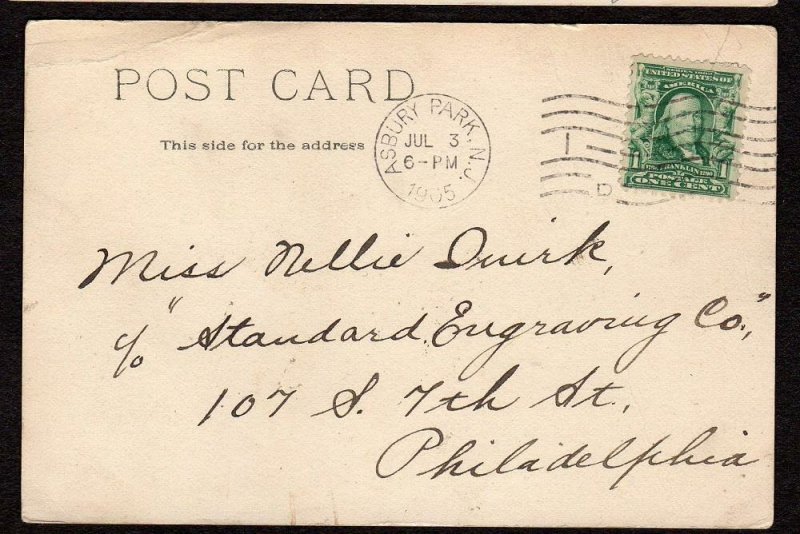 POST CARD
This side for the address
ASBURY PARK, N.J.
JUL 3
6-PM
1905
D
UNITED STATES OF
AMERICA
FRANKLIN
POSTAGE
1 ONE CENT 1
Miss Nellie Quirk,
c/o "Standard Engraving Co.",
107 S. 7th St.,
Philadelphia